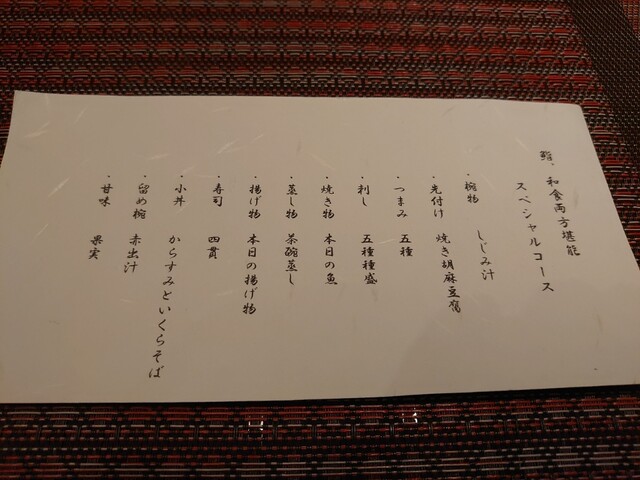 鮨、和食両方堪能
スペシャルコース
・椀物 しじみ汁
・先付け 焼き胡麻豆腐
・つまみ 五種
・刺し 五種種盛
・焼き物 本日の魚
・蒸し物 茶碗蒸し
・揚げ物 本日の揚げ物
・寿司 四貫
・小丼 からすみといくらそば
・留め椀 赤出汁
・甘味 果実